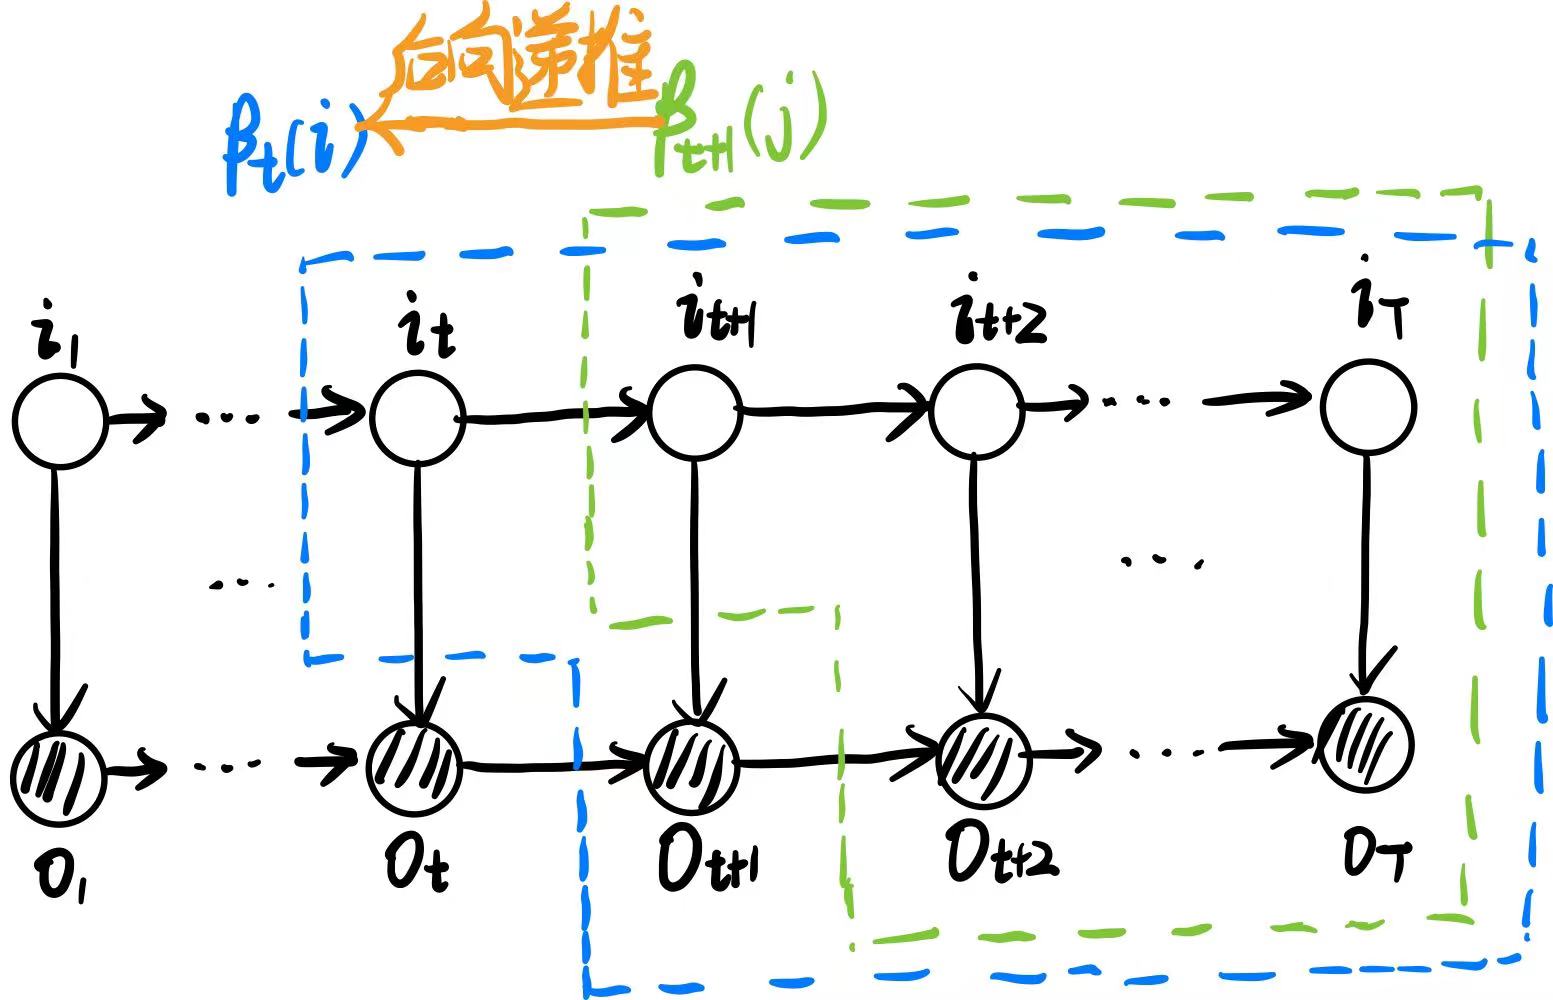 后向递推
βt(i) βt+1(j)
i1 ... it it+1 it+2 ... iT
... ...
o1 ... ot ot+1 ot+2 ... oT